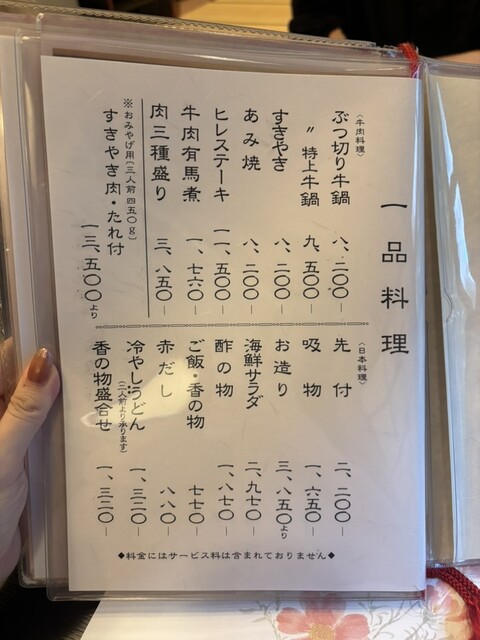 一品料理
〈牛肉料理〉
ぶつ切り牛鍋 八、二〇〇―
〃 特上牛鍋 九、五〇〇―
すきやき 八、二〇〇―
あみ焼 八、二〇〇―
ヒレステーキ 一一、五〇〇―
牛肉有馬煮 一、七六〇―
肉三種盛り 三、八五〇―
※おみやげ用(三人前 四五〇g)
すきやき肉・たれ付 一三、五〇〇より
〈日本料理〉
先付 二、二〇〇―
吸物 一、六五〇―
お造り 三、八五〇より
海鮮サラダ 二、九七〇―
酢の物 一、八七〇―
ご飯・香の物 七七〇―
赤だし 八八〇―
冷やしうどん 一、三二〇―
(二人前より承ります)
香の物盛合せ 一、三二〇―
◆料金にはサービス料は含まれておりません◆